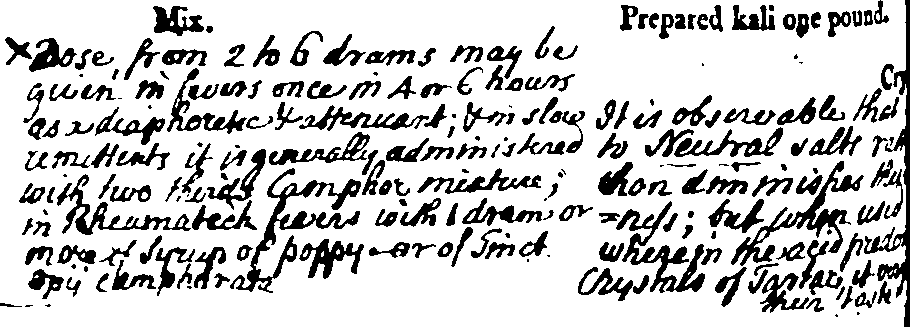 Mix.
×Dose, from 2 to 6 drams may be
given in fevers once in 4 or 6 hours
as a diaphoretic & attenuant; & in slow
remittents it is generally administered
with two thirds Camphor mixture;
in Rheumatick fevers with 1 dram or
more of Syrup of poppy or of Tinct.
opii camphorata
Prepared kali one pound.
Cry
It is observable that
to Neutral salts
than diminishes
=ness; but when used
wherein the acid predo
Chrystals of Tartar, it
their task